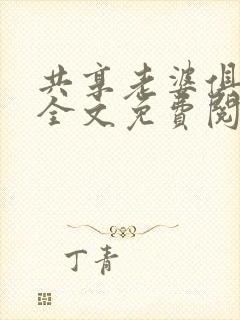 共享老婆俱
全文免費閱
丁青